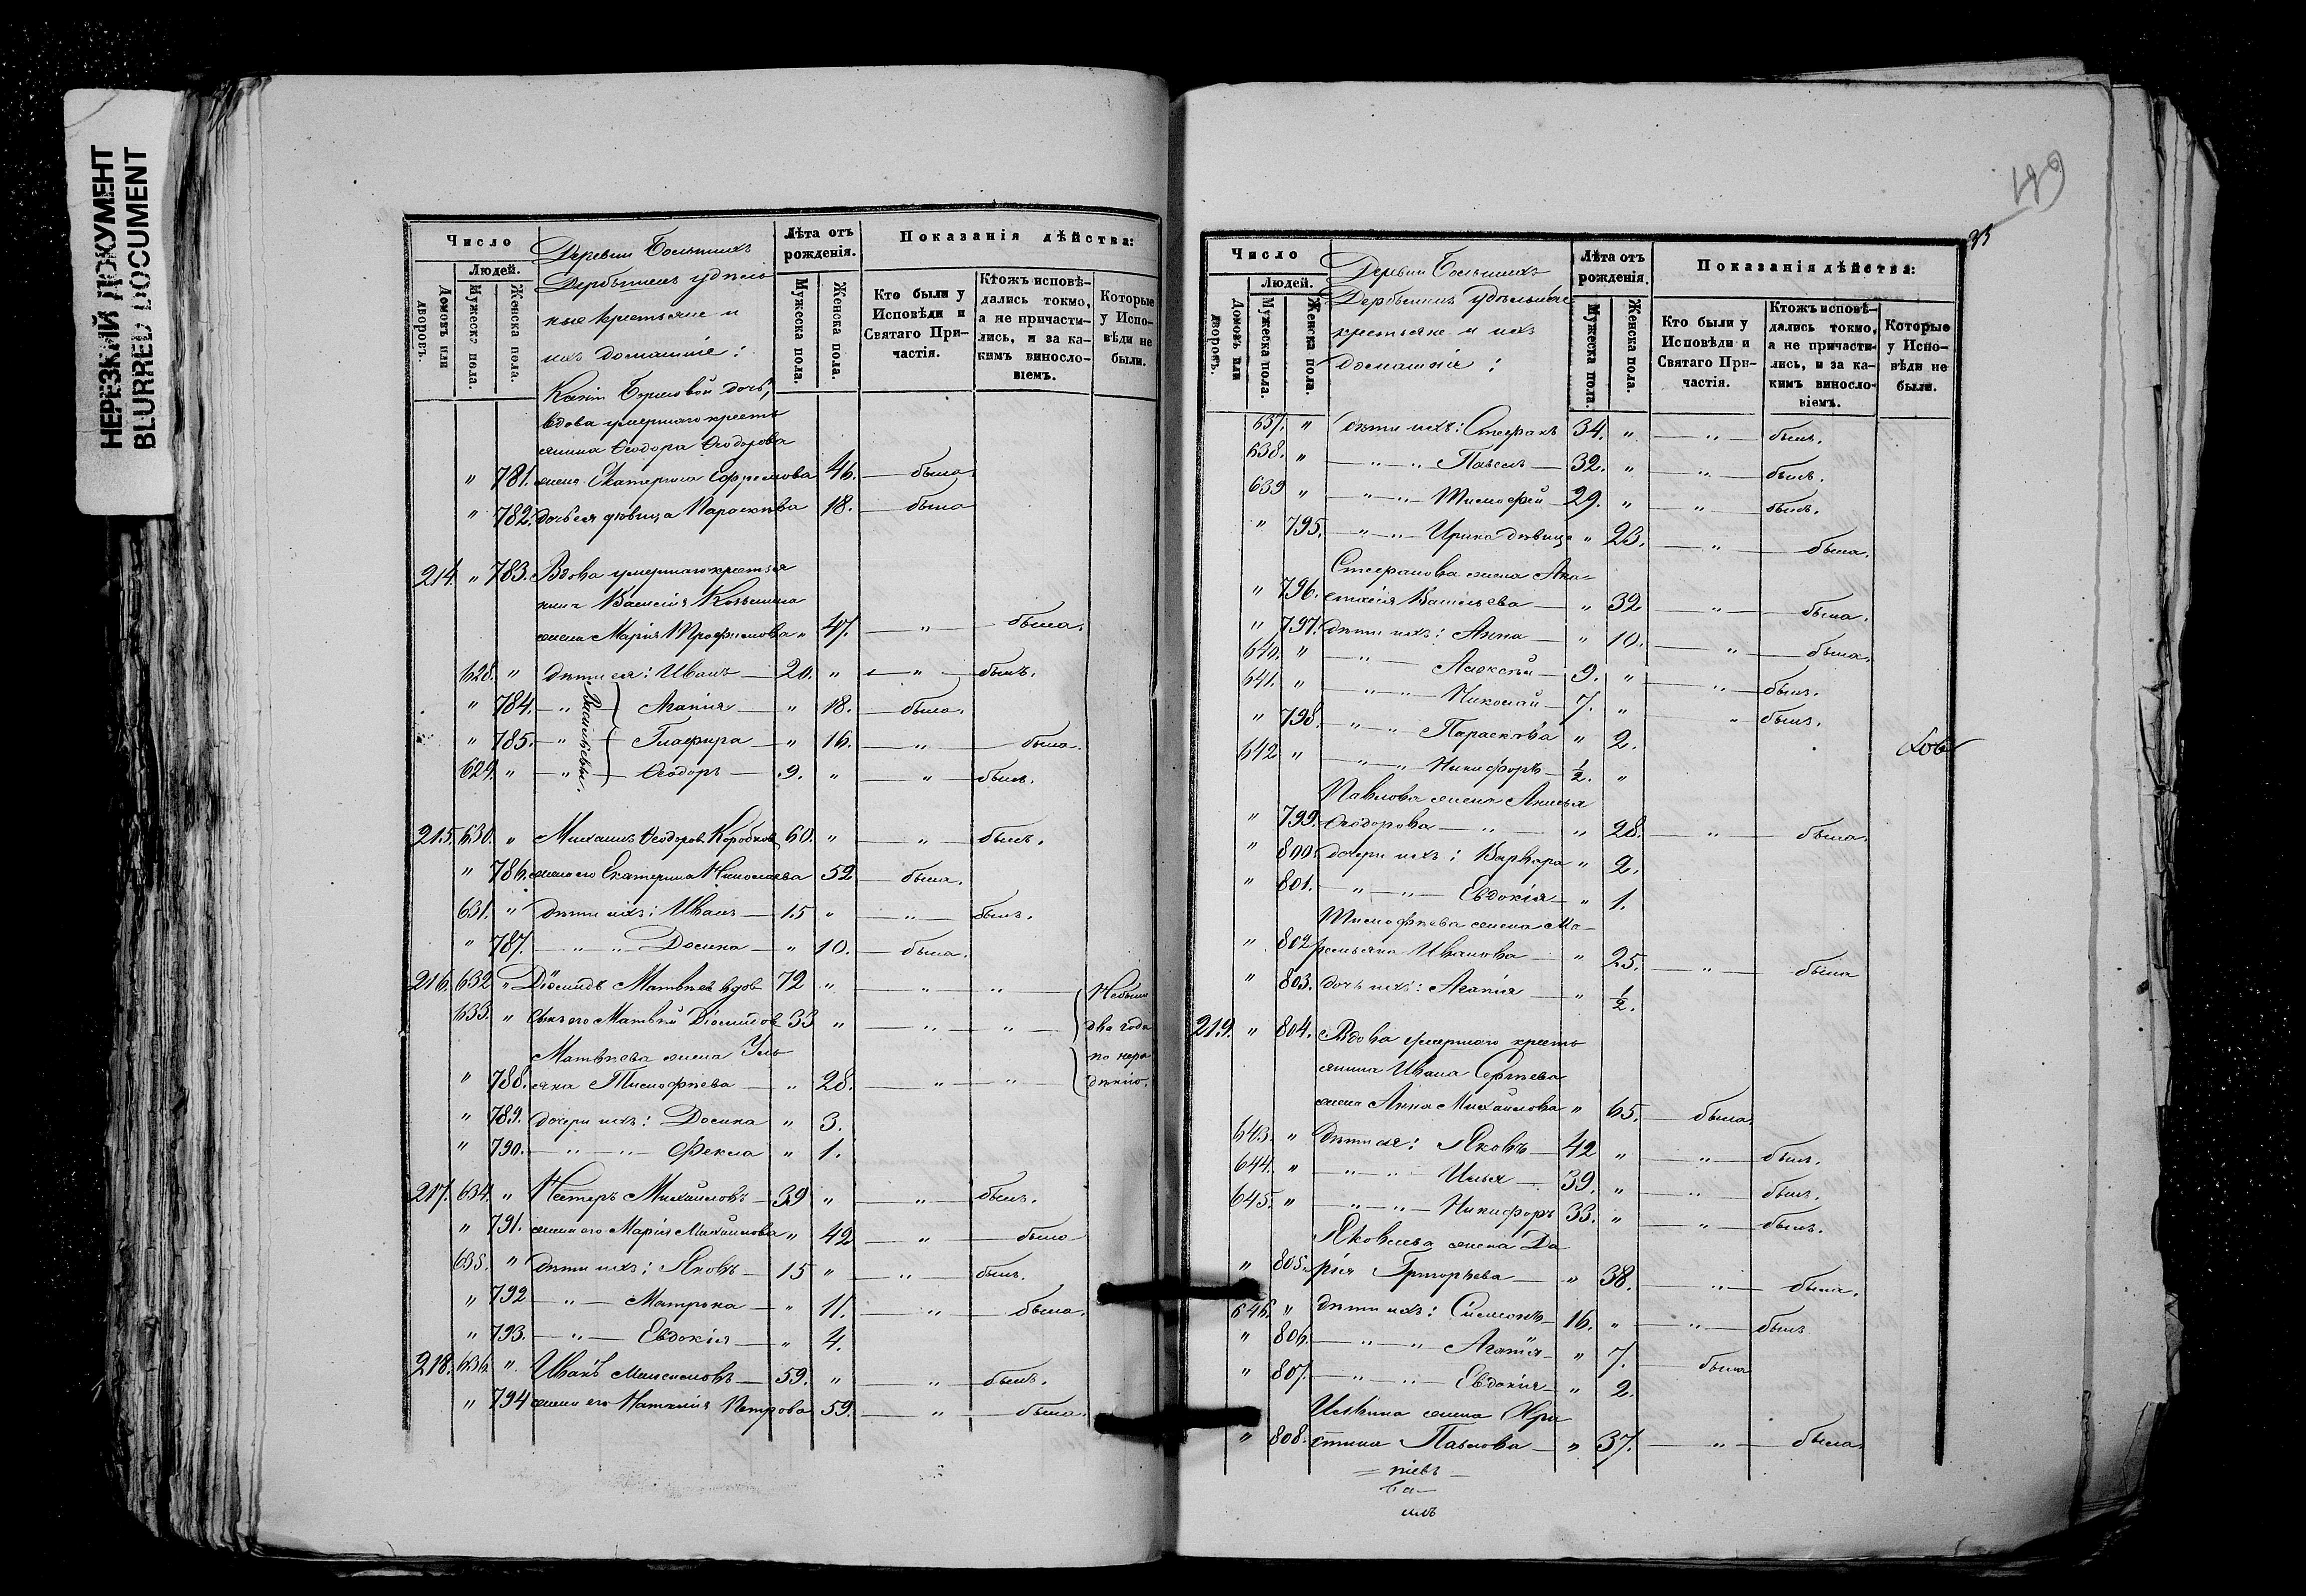 НЕРЕЗКИЙ ДОКУМЕНТ
BLURRED DOCUMENT
Число
Людей.
Домовъ или дворовъ.
Мужеска пола.
Женска пола.
Деревни Большихъ
Дербышекъ удѣль
ные крестьяне и
ихъ домашніе:
Лѣта отъ рожденія.
Мужеска пола.
Женска пола.
Показанія дѣйства:
Кто были у Исповѣди и Святаго Причастія.
Ктожъ исповѣдались токмо, а не причастились, и за какимъ винословіемъ.
Которые у Исповѣди не были.
дочь,
вдова умершаго кресть
янина Ѳеодора Ѳеодорова
" 781. жена Екатерина Ефремова 46. — была
" 782. дочь ея дѣвица Параскѣва 18. — была
214. " 783. Вдова умершаго кресття
нина Василія Козьмина
жена Марія Трофимова " 47. — " — была.
628. " дѣти ея: Иванъ — 20. " — " — былъ.
Васильевы.
" 784. — " — Агапія — " 18. — была.
" 785. — " — Глафира — " 16. — " — была.
629. " — " — Ѳеодоръ — 9. " — " — былъ.
215. 630. " Михаилъ Ѳеодоров Коробков 60. " — " — былъ.
" 786. жена его Екатерина Николаева 52 — была.
631. " дѣти ихъ: Иванъ — 15 " — " — былъ.
" 787. — " — " — Домна — " 10. — была.
216. 632 " Діомидъ Матвѣев вдов 72 " — " — " — Небыли
633. " сынъ его Матвѣй Діомидов 33 " — " — " — два года
Матвѣева жена Уль по нера
" 788. яна Тимофѣева — " 28. — " — " — дѣнію.
" 789. дочери ихъ: Домна " 3.
" 790. — " — " — Фекла " 1.
217. 634. " Нестеръ Михайловъ — 39 " — " — былъ.
" 791. жена его Марія Михайлова " 42 — " — была
635. " дѣти ихъ: Яковъ — 15 " — " — былъ.
" 792 — " — Матрона — " 11. — " — была.
" 793. — " — Евдокія — " 4.
218. 636. " Иванъ Максимовъ — 59. " — " — былъ.
" 794 жена его Наталія Петрова 59. — " — была.
33
Число
Людей.
Домовъ или дворовъ.
Мужеска пола.
Женска пола.
Деревни Большихъ
Дербышекъ удѣльные
крестьяне и ихъ
домашніе:
Лѣта отъ рожденія.
Мужеска пола.
Женска пола.
Показанія дѣйства:
Кто были у Исповѣди и Святаго Причастія.
Ктожъ исповѣдались токмо, а не причастились, и за какимъ винословіемъ.
Которые у Исповѣди не были.
637. " дѣти ихъ: Стефанъ 34. " — " — былъ.
638. " — " — " — Павелъ — 32. " — " — былъ.
639 " — " — " — Тимофей — 29. " — " — былъ.
" 795. — " — " — Ирина дѣвица " 23. — " — была.
Стефанова жена Ана-
" 796. стасія Васильева — " 32 — " — была.
" 797. дѣти ихъ: Анна — " 10. — " — была.
640. " — " — Алексѣй — 9. " — " — былъ.
641. " — " — " — Николай — 7. " — " былъ.
" 798. — " — " — Параскѣва " 2.
642 " — " — " — Никифоръ — ½. "
Павлова жена Анисья
" 799. Ѳеодорова — " — " 28. — " — была.
" 800. дочери ихъ: Варвара " 2.
" 801. — " — " — Евдокія — " 1.
Тимофѣева жена Ма-
" 802 Ивановна — " 25. — " — была
" 803. дочь ихъ: Агапія — " ½.
219. " 804. Вдова умершаго кресть
янина Ивана Сергѣева
жена Анна Михайлова " 65. — была.
643. " дѣти ея: Яковъ — 42 " — " — былъ.
644. " — " — " — Илья — 39. " — " — былъ.
645. " — " — " — Никифоръ 33. " — " — былъ.
Яковлева жена Да
" 805. рія Григорьева — " 38. — " — была.
646. " дѣти ихъ: Симеонъ — 16. " — " — былъ
" 806. — " — " — Агапія — " 7. — была
" 807. — " — " — Евдокія — " 2.
Ильина жена Хри
" 808. стина Павлова — " 37. — " — была.